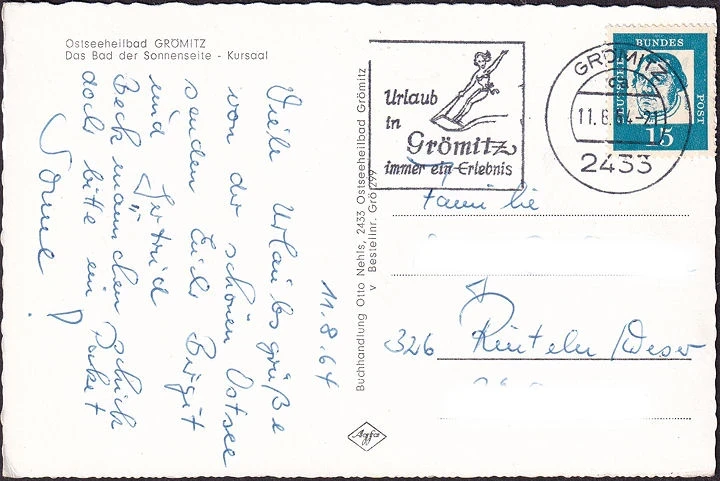 Ostseeheilbad GRÖMITZ
Das Bad der Sonnenseite - Kursaal
11.8.64
Viele Urlaubsgrüße
von der schönen Ostsee
senden Euch Birgit
und Gertrud
Beckmännchen schick
doch bitte ein Paket
Sonne!
Buchhandlung Otto Nehls, 2433 Ostseeheilbad Grömitz
v Bestellnr. Grö 299
Agfa
Urlaub
in
Grömitz
immer ein Erlebnis
GRÖMITZ
11.8.64-21
2433
DEUTSCHE
BUNDES
POST
15
Familie
326 Rinteln/Weser